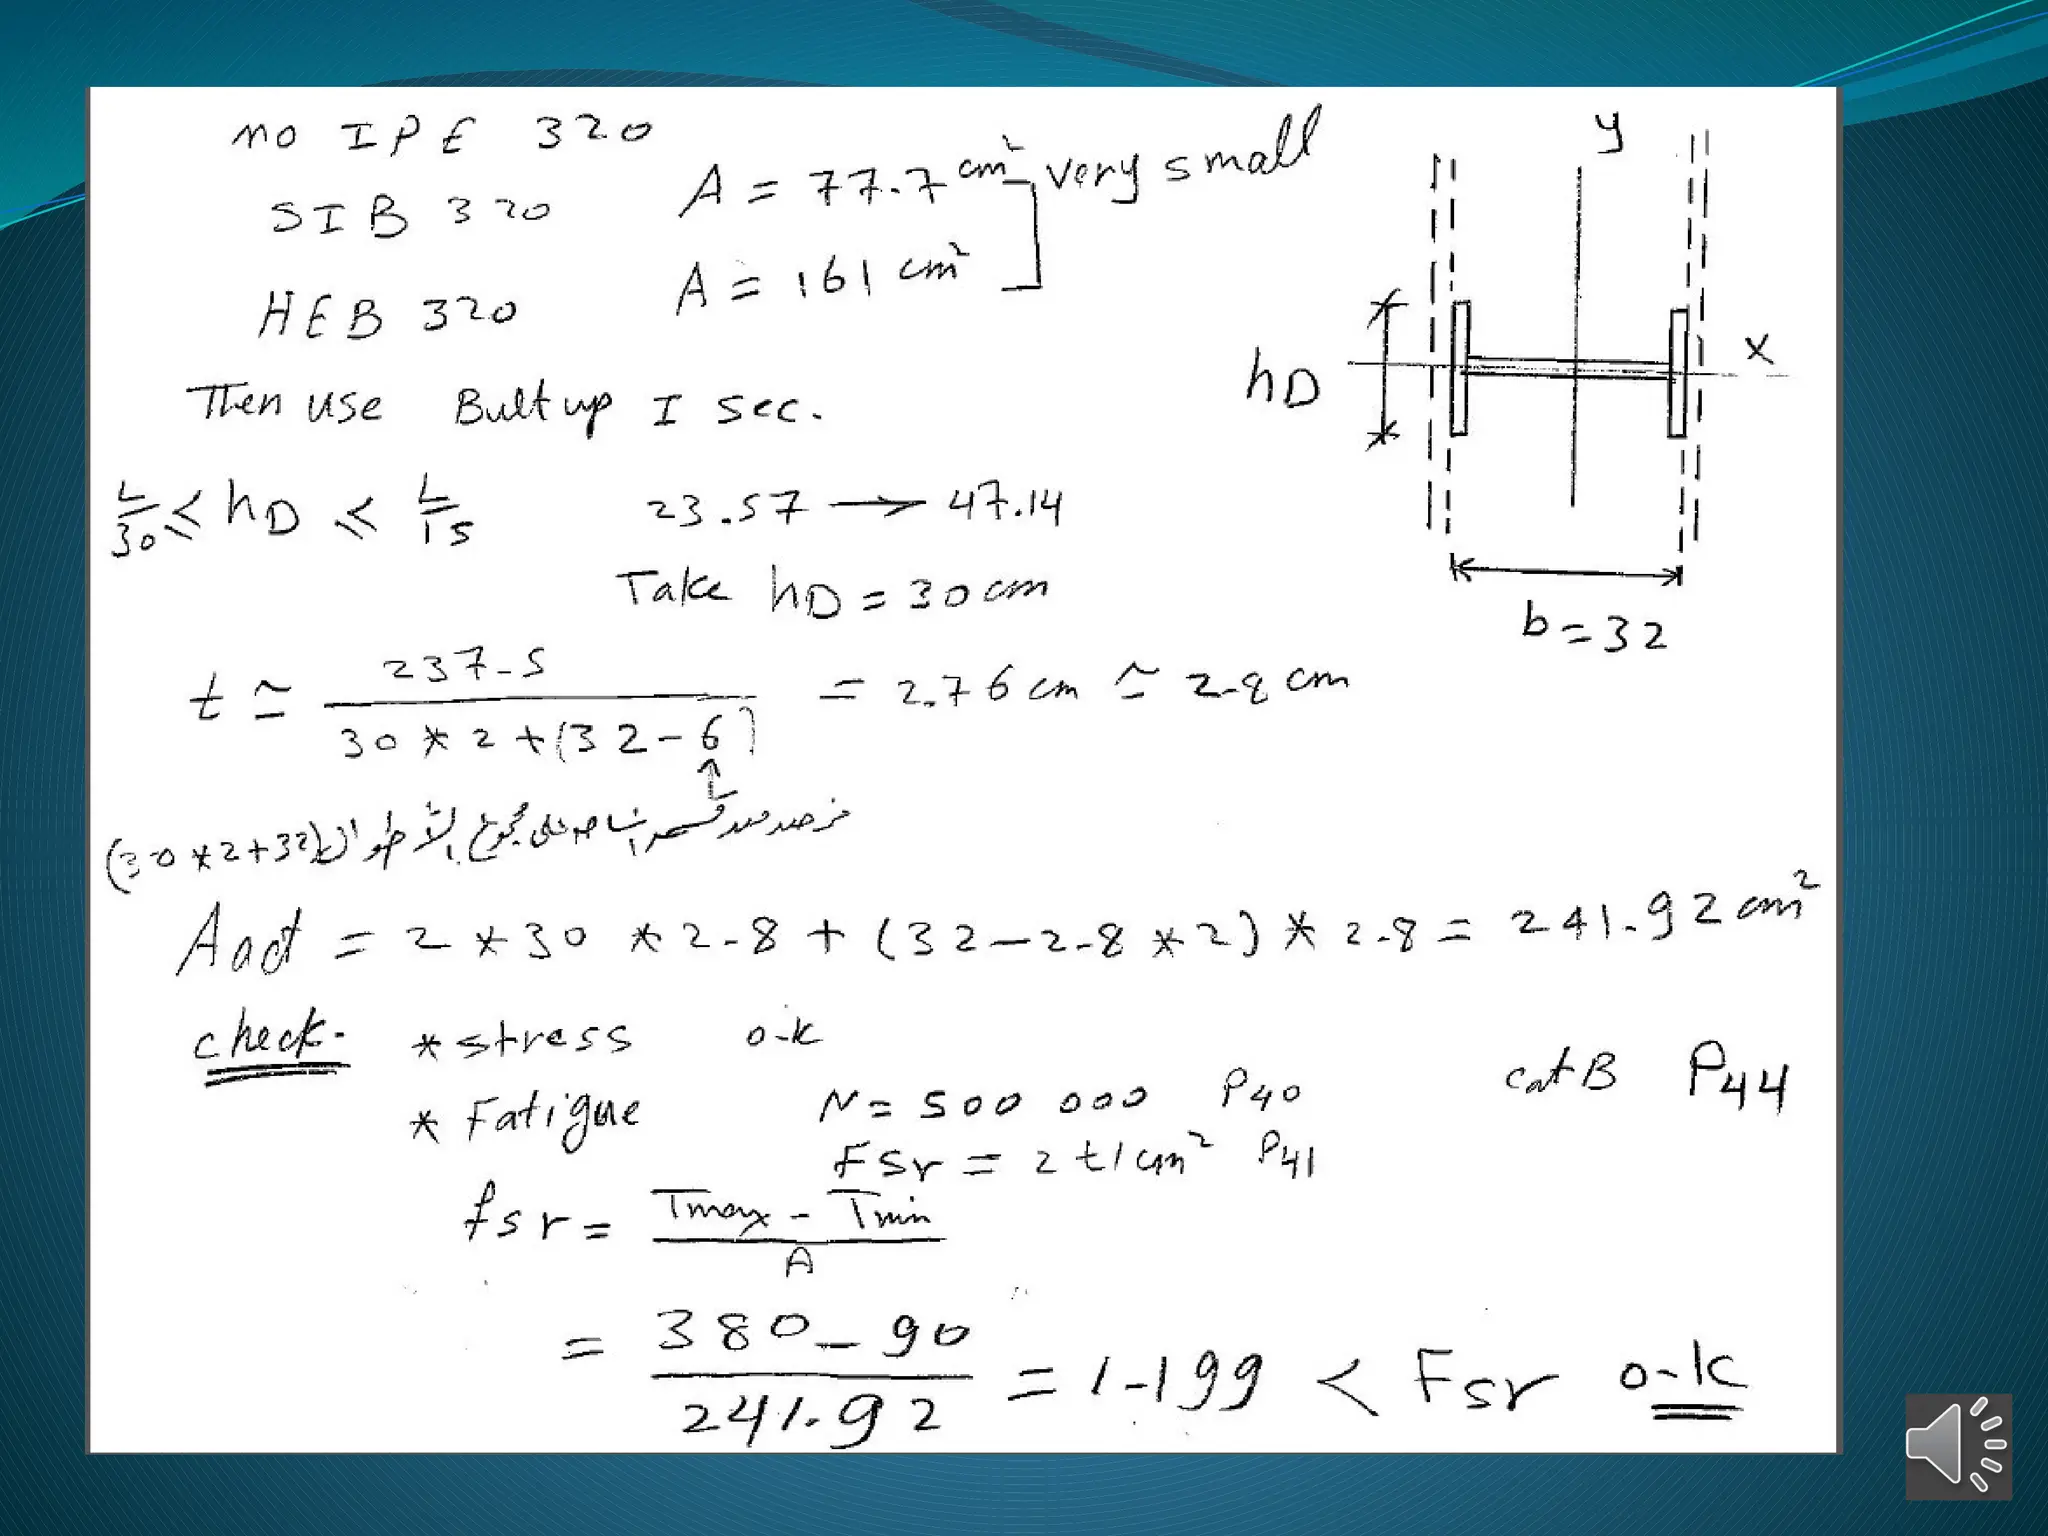 no IPE 320
SIB 320 A = 77.7 cm² very small
HEB 320 A = 161 cm²
Then use Bultup I sec.
y
x
hD
b = 32
L/30 ≤ hD ≤ L/15 23.57 → 47.14
Take hD = 30 cm
t ≃ 237.5 / 30 * 2 + (32 - 6) = 2.76 cm ≃ 2.8 cm
مجموع الأطوال (30*2+32)
Aact = 2 * 30 * 2.8 + (32 - 2.8 * 2) * 2.8 = 241.92 cm²
check. * stress o.k
* Fatigue N = 500 000 P40 cat B P44
Fsr = 2 t/cm² P41
fsr = Tmax - Tmin / A
= 380 - 90 / 241.92 = 1.199 < Fsr o.k